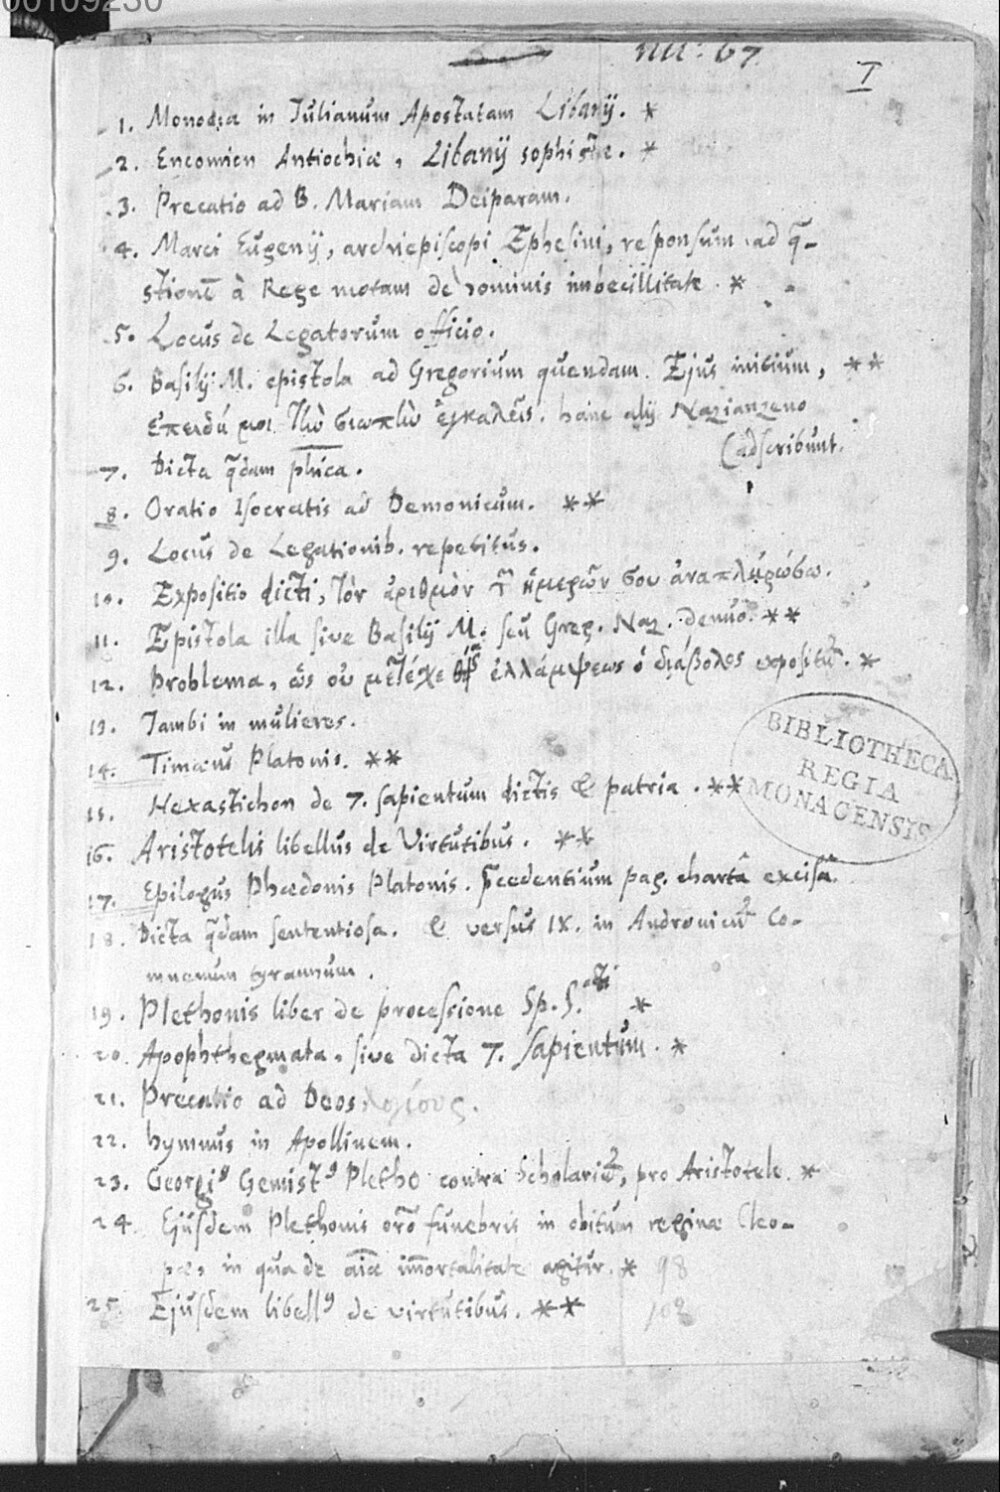 00109230
nu: 67.
I
1. Monodia in Iulianum Apostatam Libanij. *
2. Encomien Antiochiæ, Libanij sophistæ. *
3. Precatio ad B. Mariam Deiparam.
4. Marci Eugenij, archiepiscopi Ephesini, responsum ad q̃-
stionē à Rege motam de hominis imbecillitate. *
5. Locus de Legatorum officio.
6. Basilij M. epistola ad Gregorium quendam. Ejus initium, **
ἐπειδή μοι τὴν σιωπὴν ἐγκαλεῖς. hanc alij Nazianzeno
(adscribunt.
7. Dicta q̃dam phica.
8. Oratio Isocratis ad Demonicum. **
9. Locus de Legationib. repetitus.
10. Expositio dicti, Τὸν ἀριθμὸν τ̃ ἡμερῶν σου ἀναπληρώσω.
11. Epistola illa sive Basilij M. seu Greg. Naz. denuò. **
12. Problema, ὡς οὐ μετέχε ἐλλάμψεως ὁ διάβολος exposit. *
13. Iambi in mulieres.
14. Timæus Platonis. **
15. Hexastichon de 7. sapientum dictis & patria. **
16. Aristotelis libellus de Virtutibus. **
17. Epilogus Phædonis Platonis. p̃cedentium pag. chartâ excisâ.
18. Dicta q̃dam sententiosa. & versus IX. in Andronicũ Co-
mnenum tyrannum.
19. Plethonis liber de processione Sp. S.cti *
20. Apophthegmata, sive dicta 7. sapientum. *
21. Precatio ad Deos λογίους.
22. hymnus in Apollinem.
23. Georgi9 Gemist9 Pletho contra Scholariũ, pro Aristotele. *
24. Ejusdem Plethonis orõ funebris in obitum reginæ Cleo-
pæ, in qua de aiæ im̃ortalitate agitur. * 98
25. Ejusdem libell9 de virtutibus. ** 108
BIBLIOTHECA
REGIA
MONACENSIS